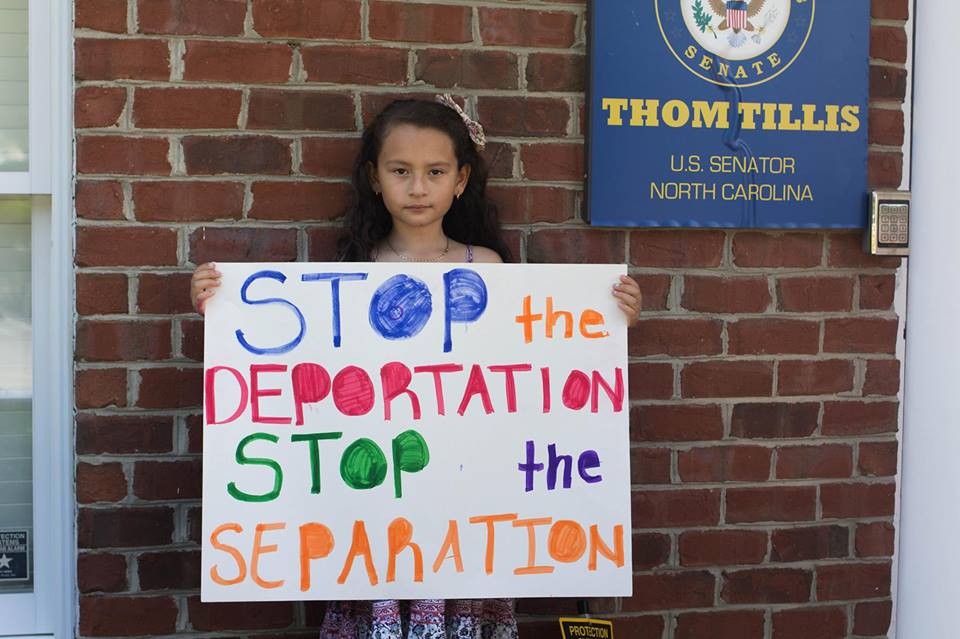 SENATE
THOM TILLIS
U.S. SENATOR
NORTH CAROLINA
STOP the
DEPORTATION
STOP the
SEPARATION
PROTECTION